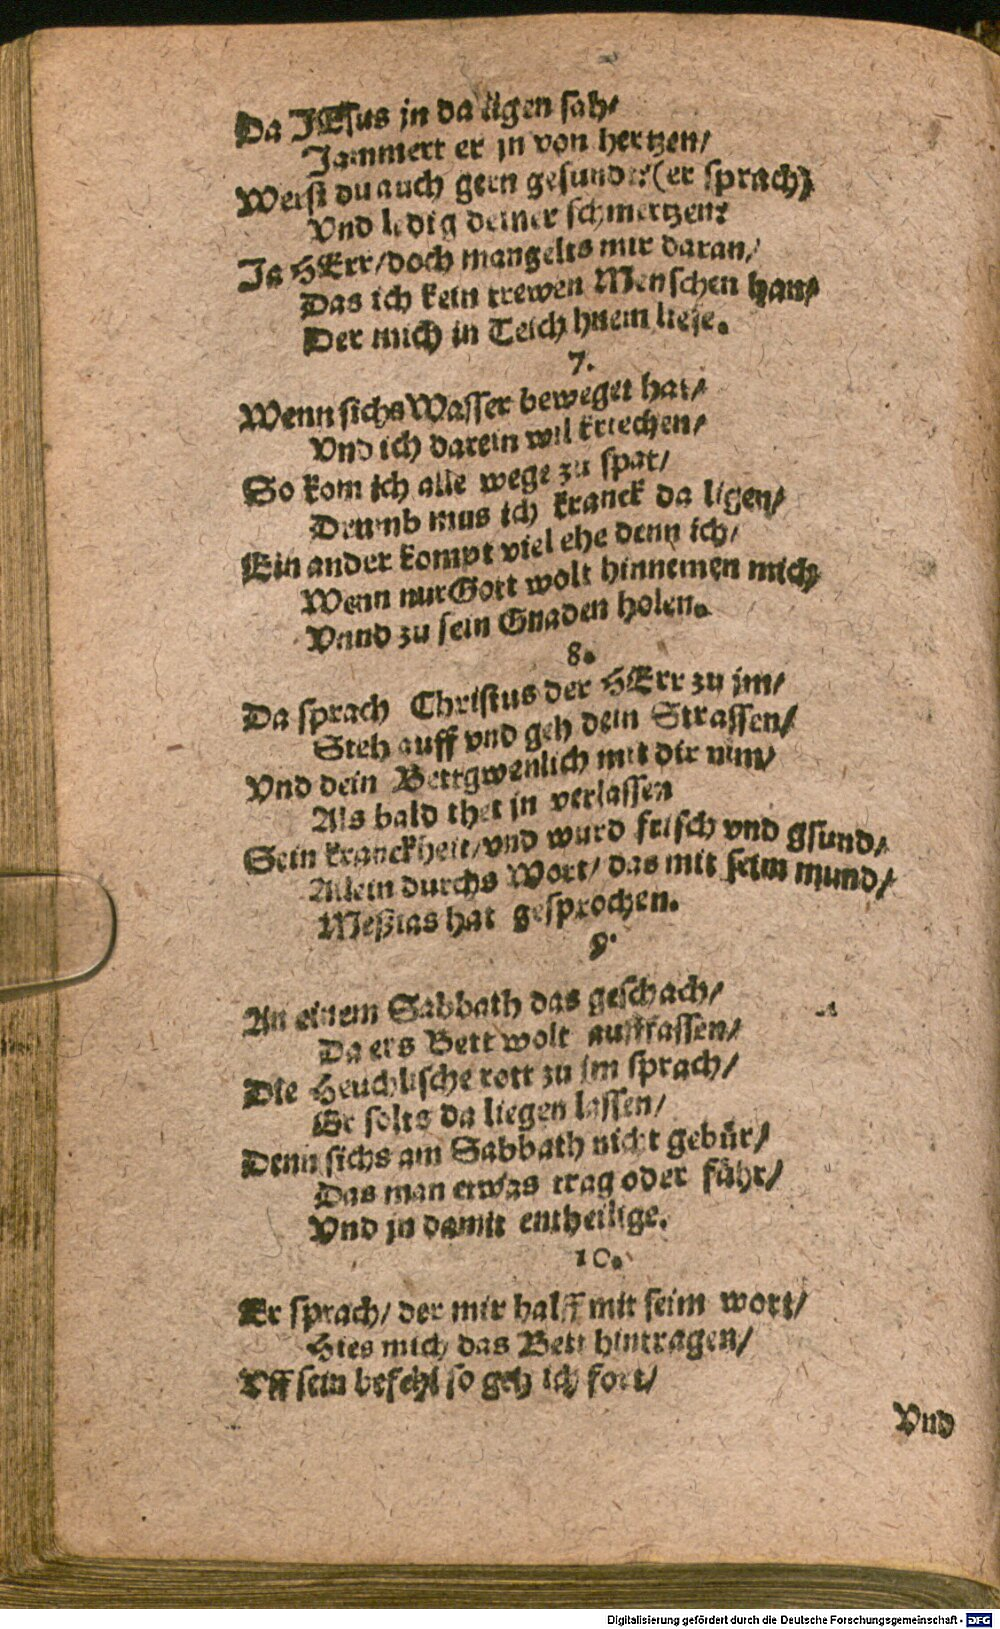 Da JEsus jn da ligen sah/
Jammert er jn von hertzen/
Werst du auch gern gesundt? (er sprach)
Vnd ledig deiner schmertzen?
Ja HErr/ doch mangelts mir daran/
Das ich kein trewen Menschen han/
Der mich in Teich hnein liese.
7.
Wenn sichs Wasser beweget hat/
Vnd ich darein wil kriechen/
So kom ich alle wege zu spat/
Drumb mus ich kranck da ligen/
Ein ander kompt viel ehe denn ich/
Wenn nur Gott wolt hinnemen mich/
Vnnd zu sein Gnaden holen.
8.
Da sprach Christus der HErr zu jm/
Steh auff vnd geh dein Strassen/
Vnd dein Bettgwenlich mit dir nim/
Als bald thet jn verlassen
Sein kranckheit/ vnd wurd frisch vnd gsund/
Allein durchs Wort/ das mit seim mund/
Meßias hat gesprochen.
9.
An einem Sabbath das geschach/
Da ers Bett wolt auffassen/
Die Heuchlische rott zu jm sprach/
Er solts da liegen lassen/
Denn sichs am Sabbath nicht gebür/
Das man etwas trag oder führ/
Vnd jn damit entheilige.
10.
Er sprach/ der mir halff mit seim wort/
Hies mich das Bett hintragen/
Vff sein befehl so geh ich fort/
Vnd
Digitalisierung gefördert durch die Deutsche Forschungsgemeinschaft - DFG